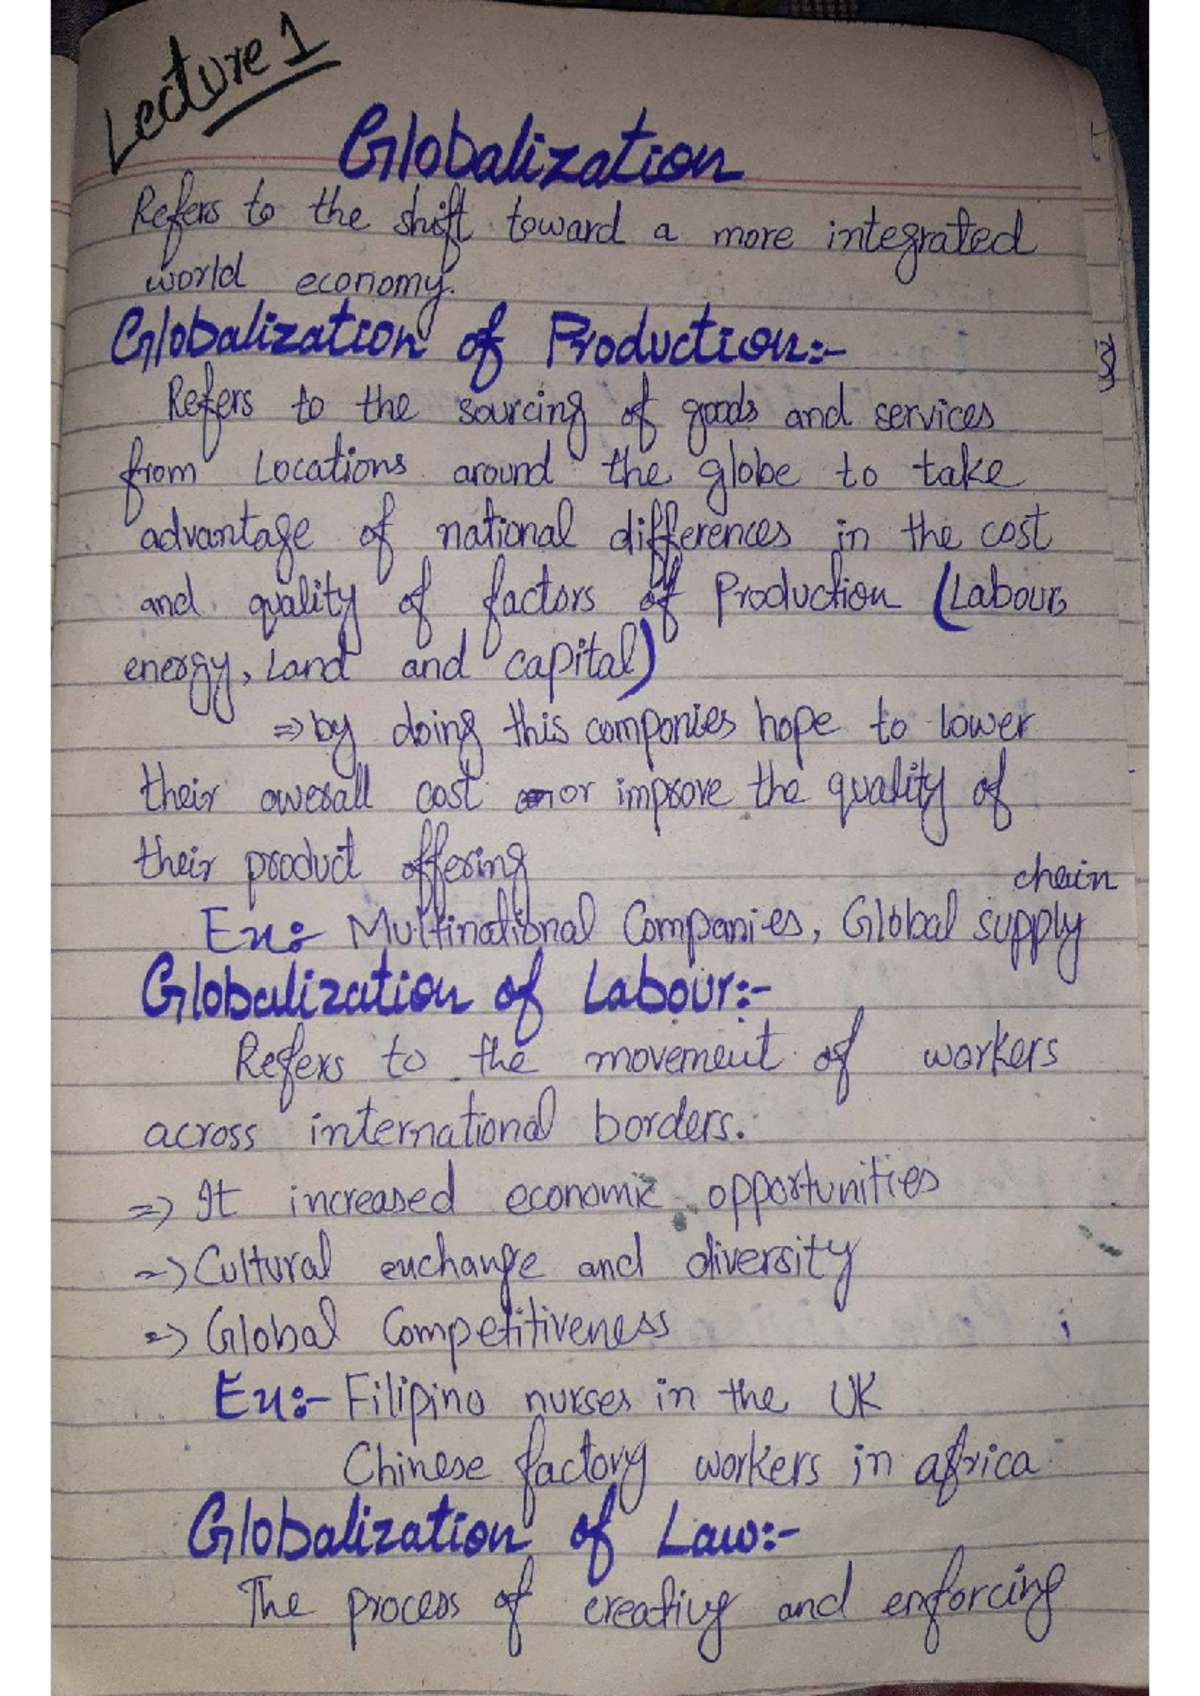 Lecture 1
Globalization
Refers to the shift toward a more integrated
world economy.
Globalization of Production:-
Refers to the sourcing of goods and services
from Locations around the globe to take
advantage of national differences in the cost
and quality of factors of Production (Labour,
energy, Land and capital)
⇒ by doing this companies hope to lower
their overall cost or improve the quality of
their product offering
chain
Ex:- Multinational Companies, Global supply
Globalization of Labour:-
Refers to the movement of workers
across international borders.
⇒ It increased economic opportunities
⇒ Cultural exchange and diversity
⇒ Global Competitiveness
Ex:- Filipino nurses in the UK
Chinese factory workers in africa
Globalization of Law:-
The process of creating and enforcing